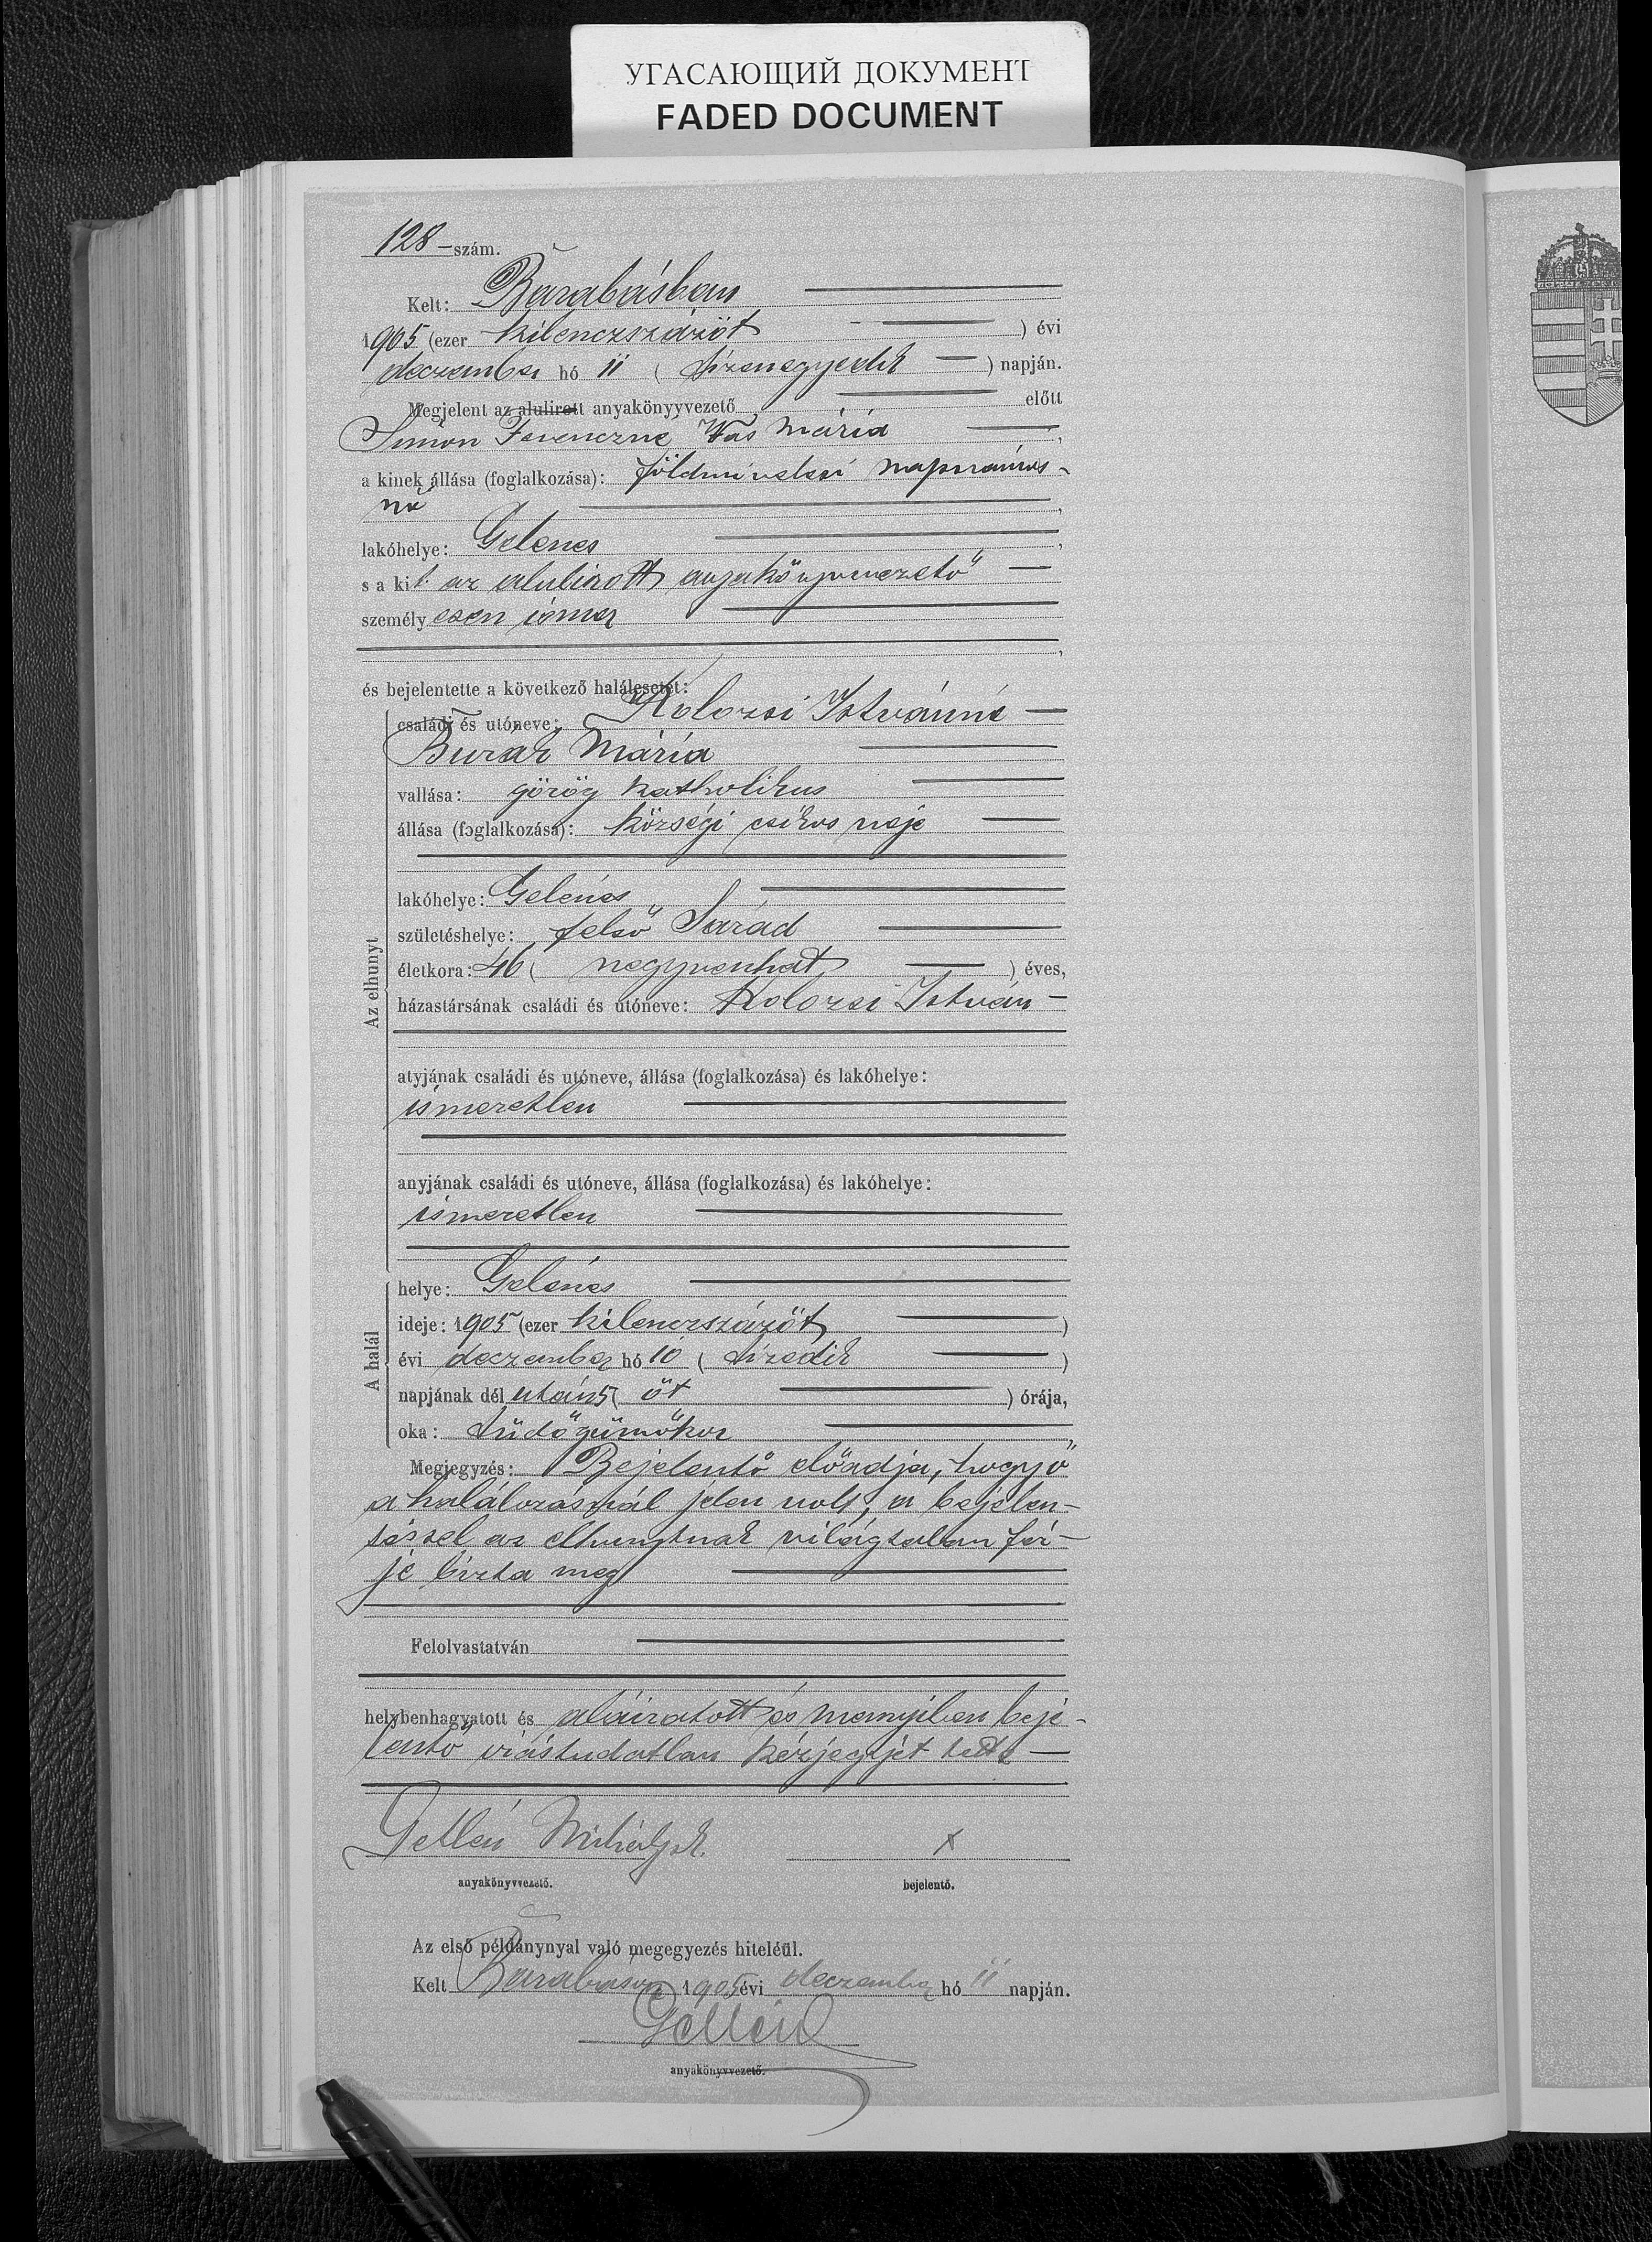 УГАСАЮЩИЙ ДОКУМЕНТ
FADED DOCUMENT
128 – szám.
Kelt: Barabásban
1905 (ezer kilenczszázöt ) évi
deczember hó 11 ( tizenegyedik ) napján.
Megjelent az alulirott anyakönyvvezető előtt
Simon Ferenczné Vas Mária ,
a kinek állása (foglalkozása): földmivelési napszámos-
nő ,
lakóhelye: Gelenes ,
s a kit az alulirott anyakönyvvezető
személyesen ismer
,
és bejelentette a következő halálesetet:
Az elhunyt
családi és utóneve: Kolozsi Istvánné
Burák Mária
vallása: görög katholikus
állása (foglalkozása): községi csikós neje
lakóhelye: Gelénes
születéshelye: felső Sárad
életkora: 46 ( negyvenhat ) éves,
házastársának családi és utóneve: Kolozsi István
atyjának családi és utóneve, állása (foglalkozása) és lakóhelye:
ismeretlen
anyjának családi és utóneve, állása (foglalkozása) és lakóhelye:
ismeretlen
A halál
helye: Gelénes
ideje: 1905 (ezer kilenczszázöt )
évi deczember hó 10 ( tizedik )
napjának dél után 5 ( öt ) órája,
oka: tüdőgümőkor
Megjegyzés: Bejelentő előadja, hogy ő
a halálozásnál jelen volt, a bejelen-
téssel az elhunytnak világtalan fér-
je bizta meg
Felolvastatván
helybenhagyatott és aláiratott és mennyiben beje-
lentő irástudatlan kézjegyét tette
Gellén Mihály x
anyakönyvvezető. bejelentő.
Az első példánynyal való megegyezés hiteléül.
Kelt Barabáson 1905 évi deczember hó 11 napján.
Gellén
anyakönyvvezető.